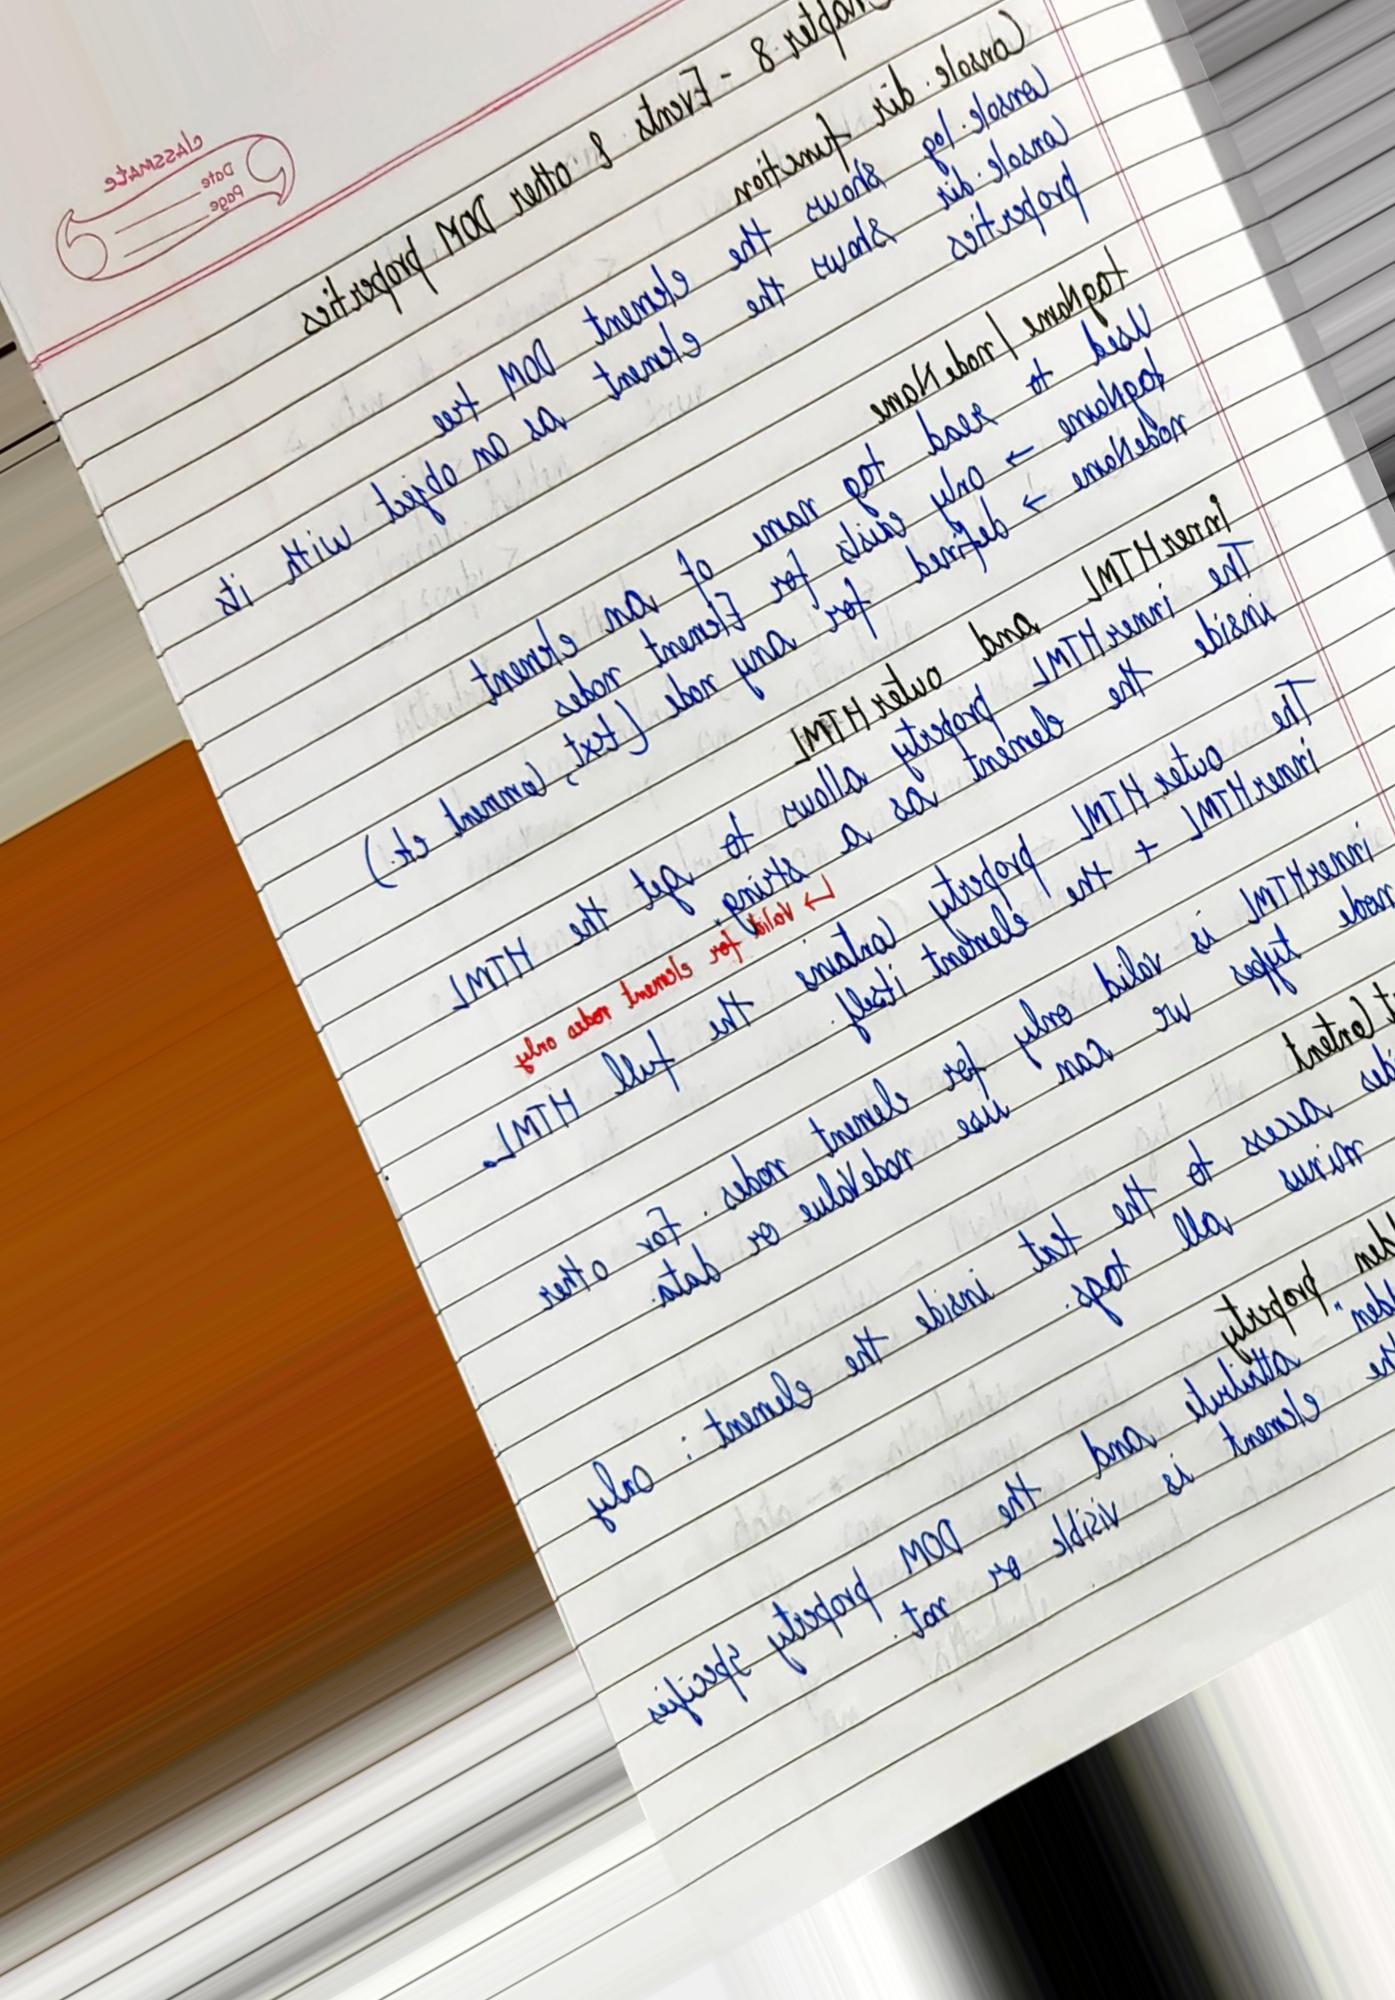 classmate
Date
Page
Chapter 8 - Events & other DOM properties
Console.dir function
Console.log shows the element DOM tree
Console.dir shows the element as an object with its
properties
tagName / nodeName
Used to read tag name of an element
tagName → only exists for Element nodes
nodeName → defined for any node (text, comment etc.)
innerHTML and outerHTML
The innerHTML property allows to get the HTML
inside the element as a string.
↳ Valid for element nodes only
The outerHTML property contains the full HTML.
innerHTML + the element itself.
innerHTML is valid only for element nodes. For other
node types we can use nodeValue or data.
t Content
ides access to the text inside the element : only
minus all tags.
dden property
dden" attribute and the DOM property specifies
the element is visible or not.